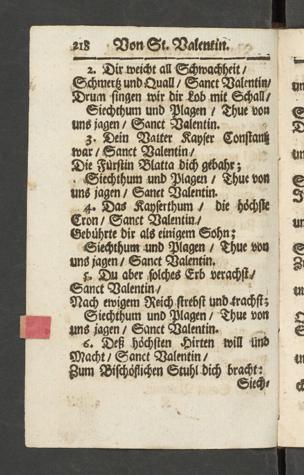 218 Von St. Valentin.
2. Dir weicht all Schwachheit /
Schmertz und Quall / Sanct Valentin /
Drum singen wir dir Lob mit Schall /
Siechthum und Plagen / Thue von
uns jagen / Sanct Valentin.
3. Dein Vatter Kayser Constantz
war / Sanct Valentin /
Die Fürstin Blatta dich gebahr;
Siechthum und Plagen / Thue von
uns jagen / Sanct Valentin.
4. Das Kayserthum / die höchste
Cron / Sanct Valentin /
Gebührte dir als einigem Sohn;
Siechthum und Plagen / Thue von
uns jagen / Sanct Valentin.
5. Du aber solches Erb verachst /
Sanct Valentin /
Nach ewigem Reich strebst und trachst;
Siechthum und Plagen / Thue von
uns jagen / Sanct Valentin.
6. Deß höchsten Hirten will und
Macht / Sanct Valentin /
Zum Bischöflichen Stuhl dich bracht:
Siech-